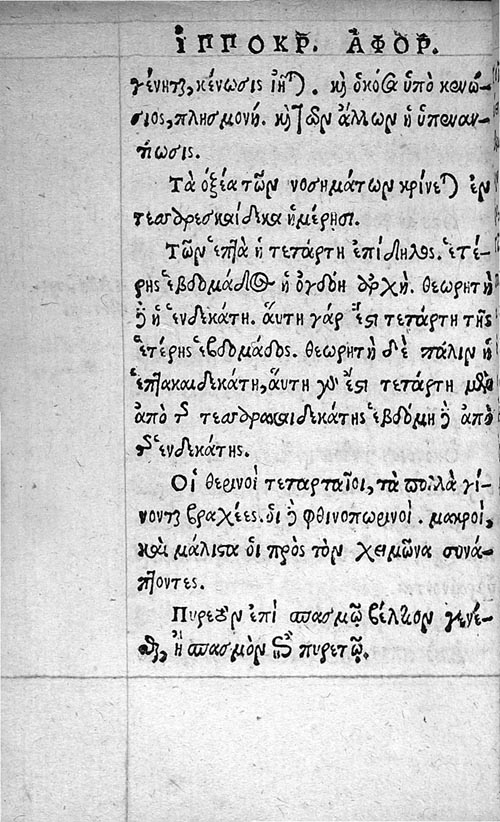 ἹΠΠΟΚΡ. ἈΦΟΡ.
γένηται, κένωσις ἰῆται. καὶ ὁκόσα ὑπὸ κενώ-
σιος, πλησμονή. καὶ τῶν ἄλλων ἡ ὑπεναν-
τίωσις.
Τὰ ὀξέα τῶν νοσημάτων κρίνεται ἐν
τεσσαρεσκαίδεκα ἡμέρῃσι.
Τῶν ἑπτὰ ἡ τετάρτη ἐπίδηλος. ἑτέ-
ρης ἑβδομάδος ἡ ὀγδόη ἀρχή. θεωρητὴ
δὲ ἡ ἑνδεκάτη. αὕτη γάρ ἐστι τετάρτη τῆς
ἑτέρης ἑβδομάδος. θεωρητὴ δὲ πάλιν ἡ
ἑπτακαιδεκάτη, αὕτη γάρ ἐστι τετάρτη μὲν
ἀπὸ τῆς τεσσαρακαιδεκάτης ἑβδόμη δὲ ἀπὸ
τῆς ἑνδεκάτης.
Οἱ θερινοὶ τεταρταῖοι, τὰ πολλὰ γί-
νονται βραχέες. οἱ δὲ φθινοπωρινοὶ. μακροὶ,
καὶ μάλιστα οἱ πρὸς τὸν χειμῶνα συνά-
πτοντες.
Πυρετὸν ἐπὶ σπασμῷ βέλτιον γενέ-
σθαι, ἢ σπασμὸν ἐπὶ πυρετῷ.